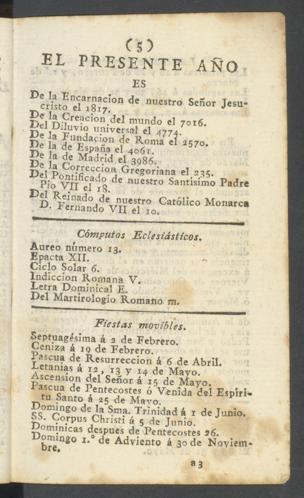 (5)
EL PRESENTE AÑO
ES
De la Encarnacion de nuestro Señor Jesu-
cristo el 1817.
De la Creacion del mundo el 7016.
Del Diluvio universal el 4774.
De la Fundacion de Roma el 2570.
De la de España el 4061.
De la de Madrid el 3986.
De la Correccion Gregoriana el 235.
Del Pontificado de nuestro Santisimo Padre
Pio VII el 18.
Del Reinado de nuestro Católico Monarca
D. Fernando VII el 10.
Cómputos Eclesiásticos.
Aureo número 13.
Epacta XII.
Ciclo Solar 6.
Indiccion Romana V.
Letra Dominical E.
Del Martirologio Romano m.
Fiestas movibles.
Septuagésima á 2 de Febrero.
Ceniza á 19 de Febrero.
Pascua de Resurreccion á 6 de Abril.
Letanías á 12, 13 y 14 de Mayo.
Ascension del Señor á 15 de Mayo.
Pascua de Pentecostes ó Venida del Espíri-
tu Santo á 25 de Mayo.
Domingo de la Sma. Trinidad á 1 de Junio.
SS. Corpus Christi á 5 de Junio.
Dominicas despues de Pentecostes 26.
Domingo 1.º de Adviento á 30 de Noviem-
bre.
a3